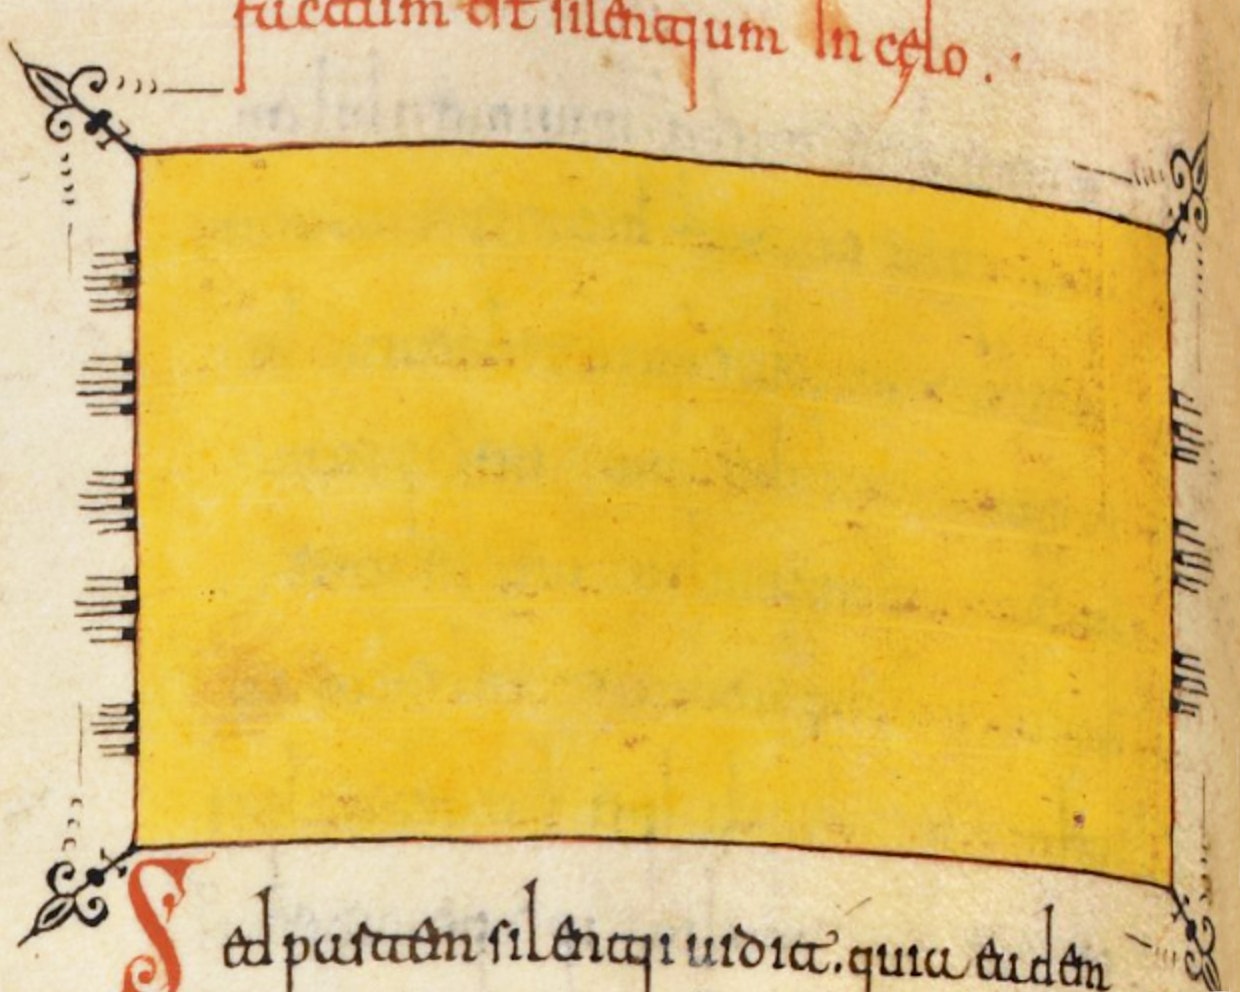 factum est silentium In cęlo.
Sed partem silentii uidit. quia eadem